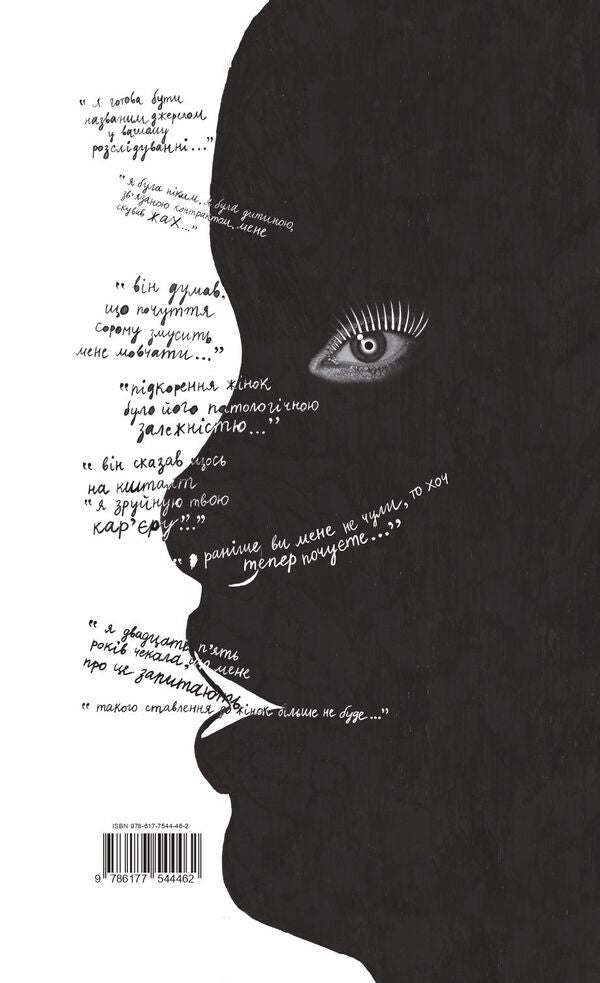 “я готова бути
названим джерелом
у вашому
розслідуванні...”
“я була ніким. я була дитиною,
зв'язаною контрактом. мене
скував жах...”
“він думав,
що почуття
сорому змусить
мене мовчати...”
“підкорення жінок
було його патологічною
залежністю...”
“він сказав щось
на кшталт
“я зруйную твою
кар'єру”...”
“раніше ви мене не чули, то хоч
тепер почуєте...”
“я двадцять п'ять
років чекала, що мене
про це запитають
“такого ставлення до жінок більше не буде...”
ISBN 978-617-7544-46-2
9 786177 544462